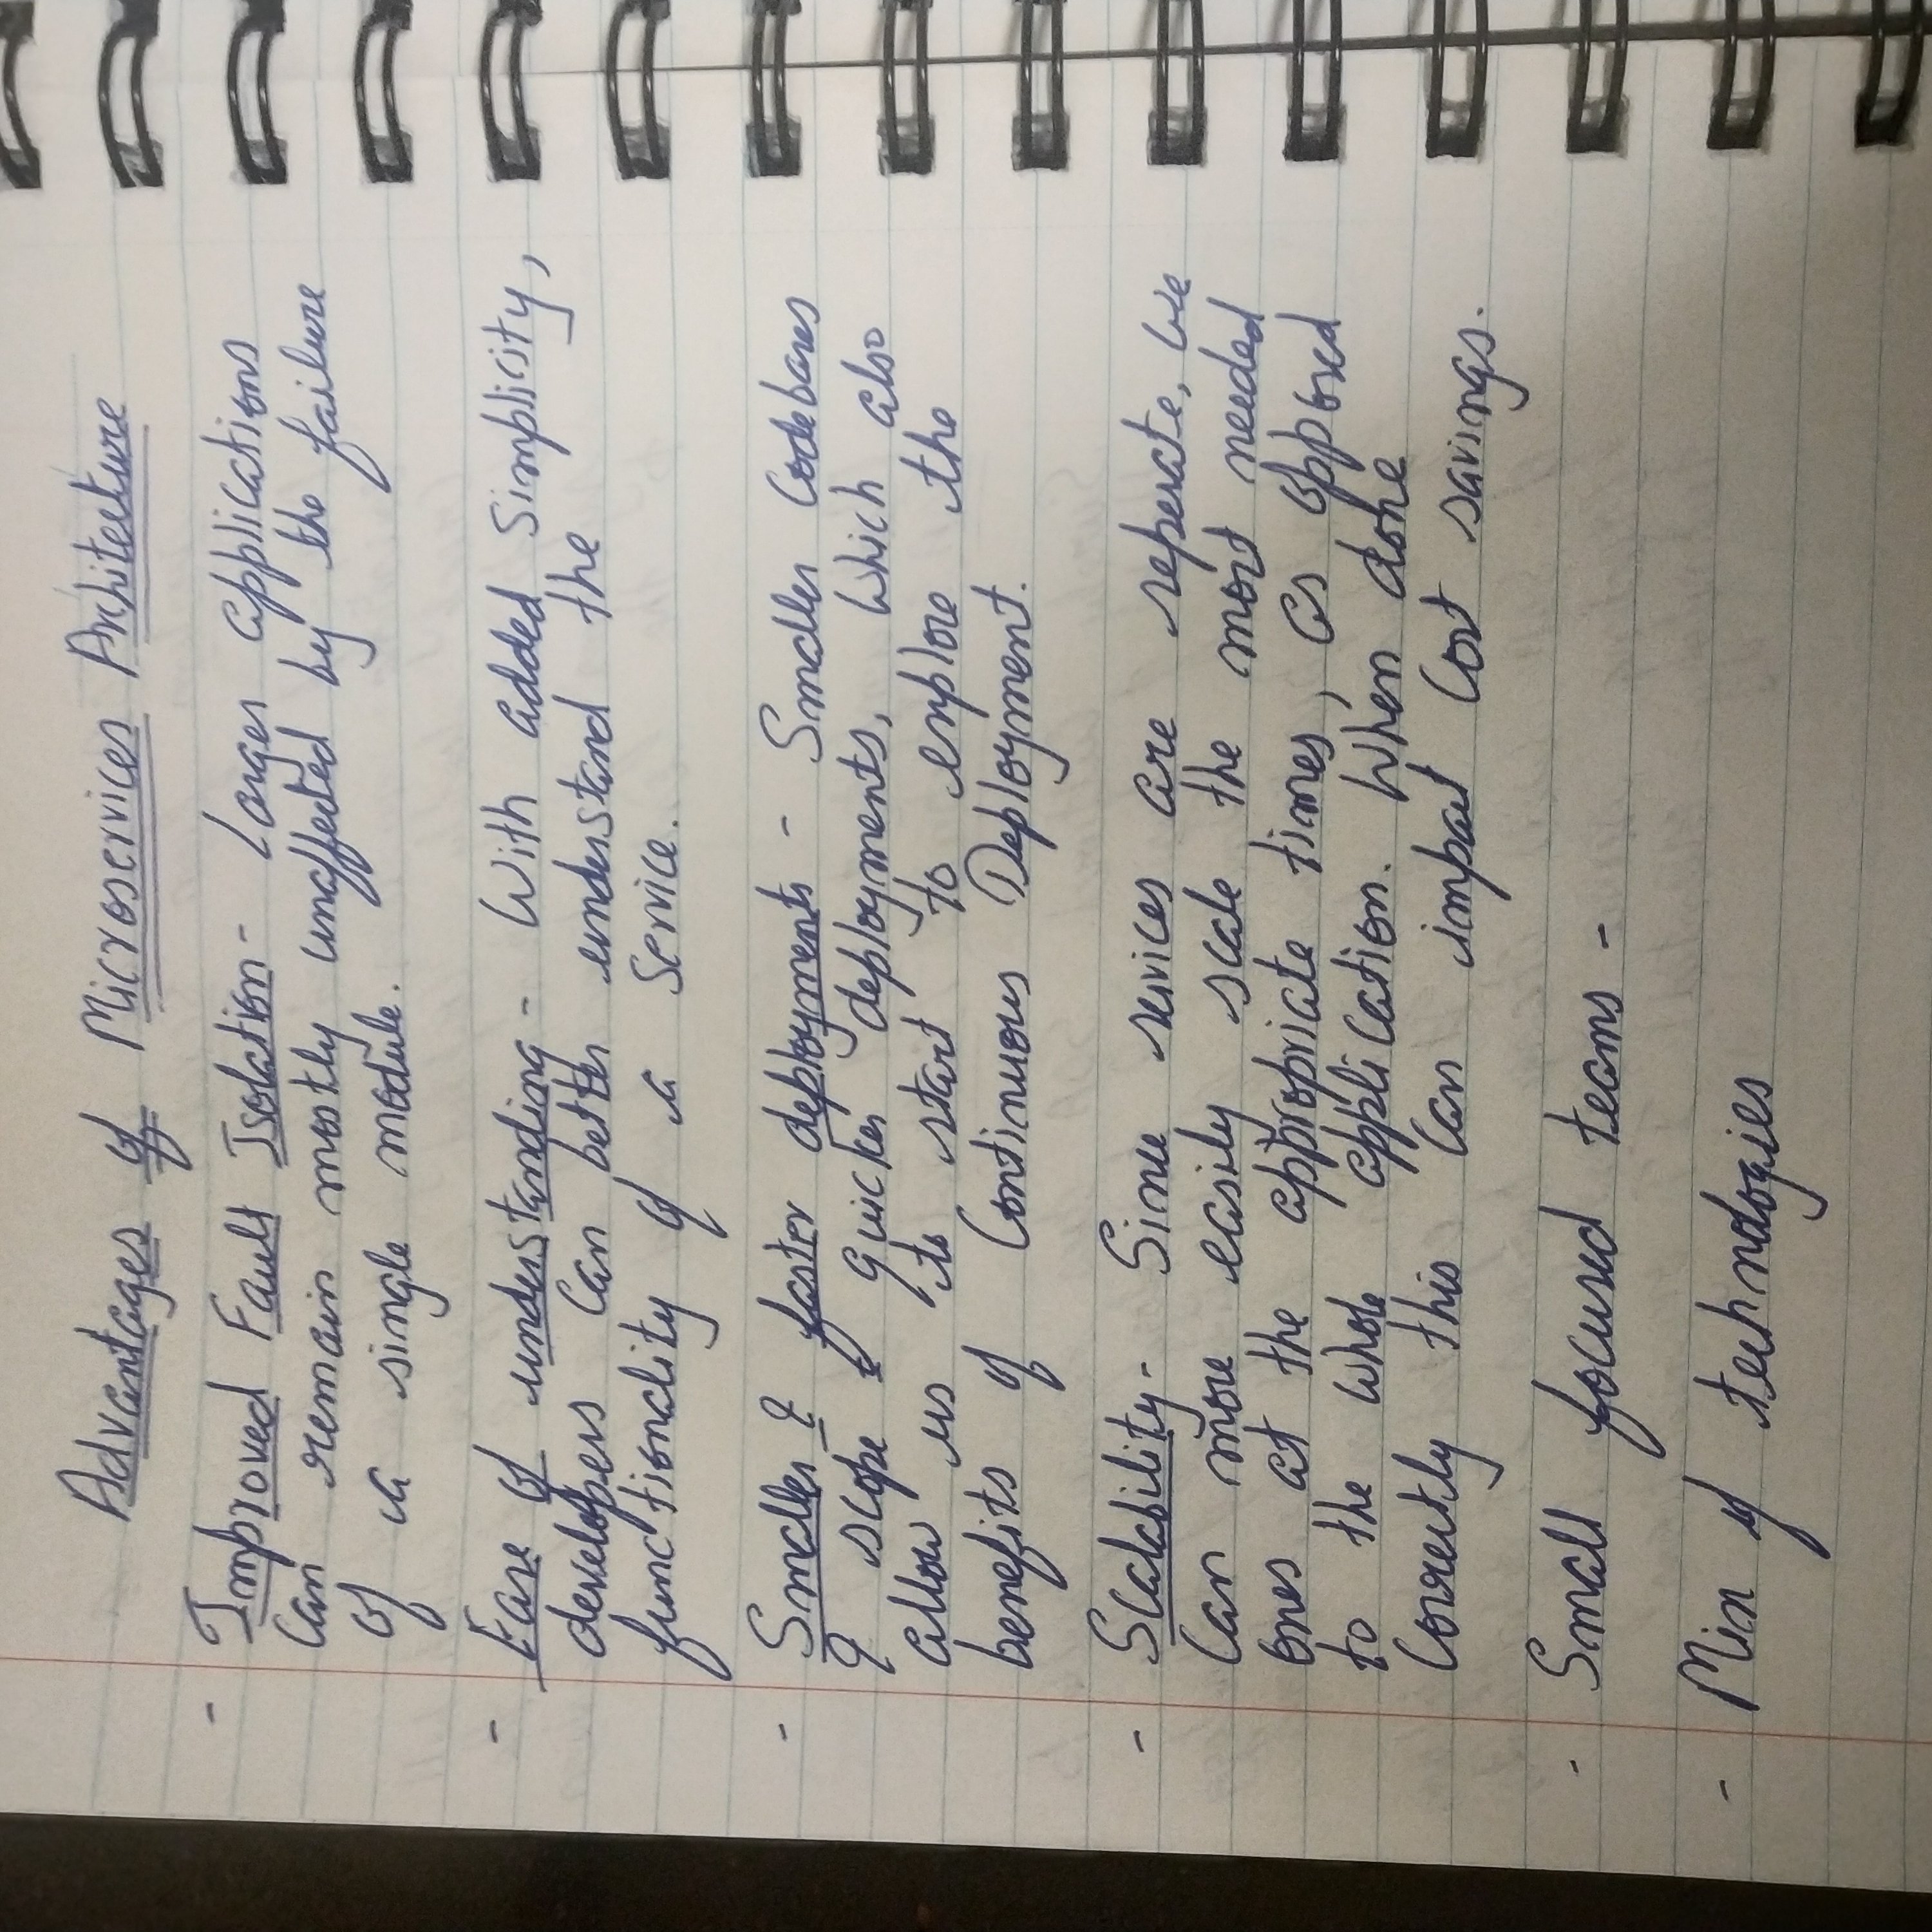 Advantages of Microservices Architecture
- Improved Fault Isolation - Larger applications
Can remain mostly unaffected by the failure
of a single module.
- Ease of understanding - With added Simplicity,
developers Can better understand the
functionality of a Service.
- Smaller & faster deployments - Smaller Codebases
& scope & quicker deployments, which also
allow us to start to explore the
benefits of Continuous Deployment.
- Scalability - Since services are seperate, we
Can more easily scale the most needed
ones at the appropriate times, as opposed
to the whole application. When done
Correctly this Can impact Cost savings.
- Small focused teams -
- Mix of technologies